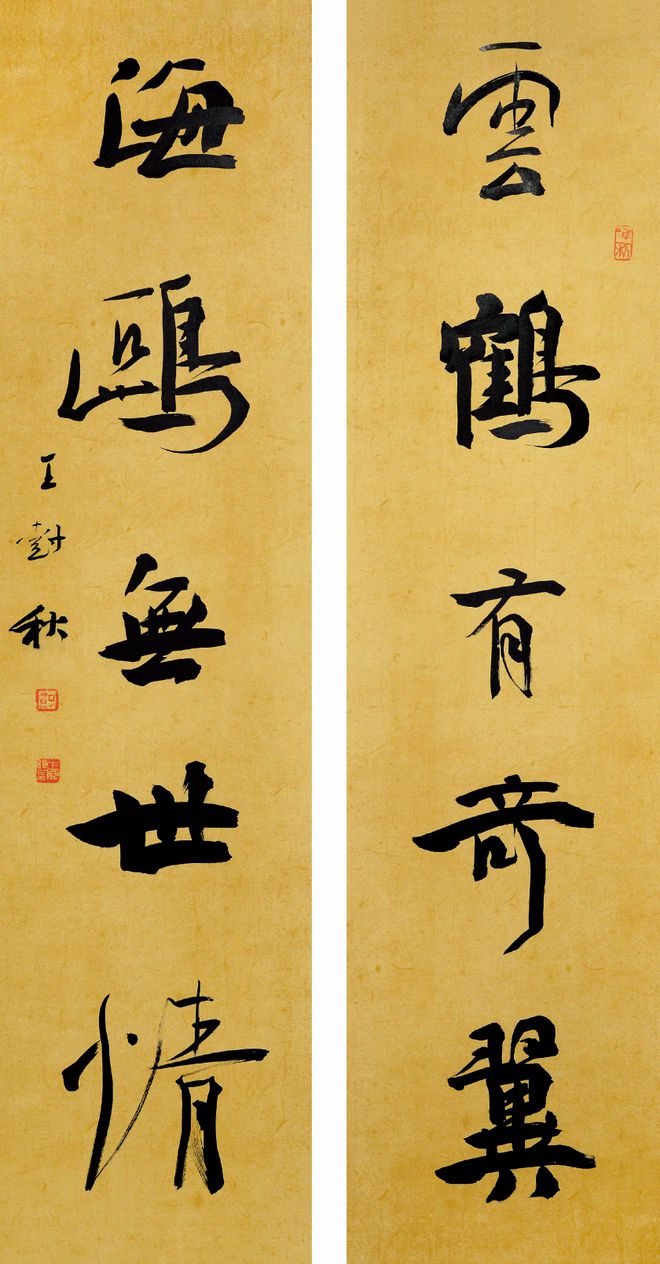 雲鶴有奇翼
海鷗無世情
王尌秋